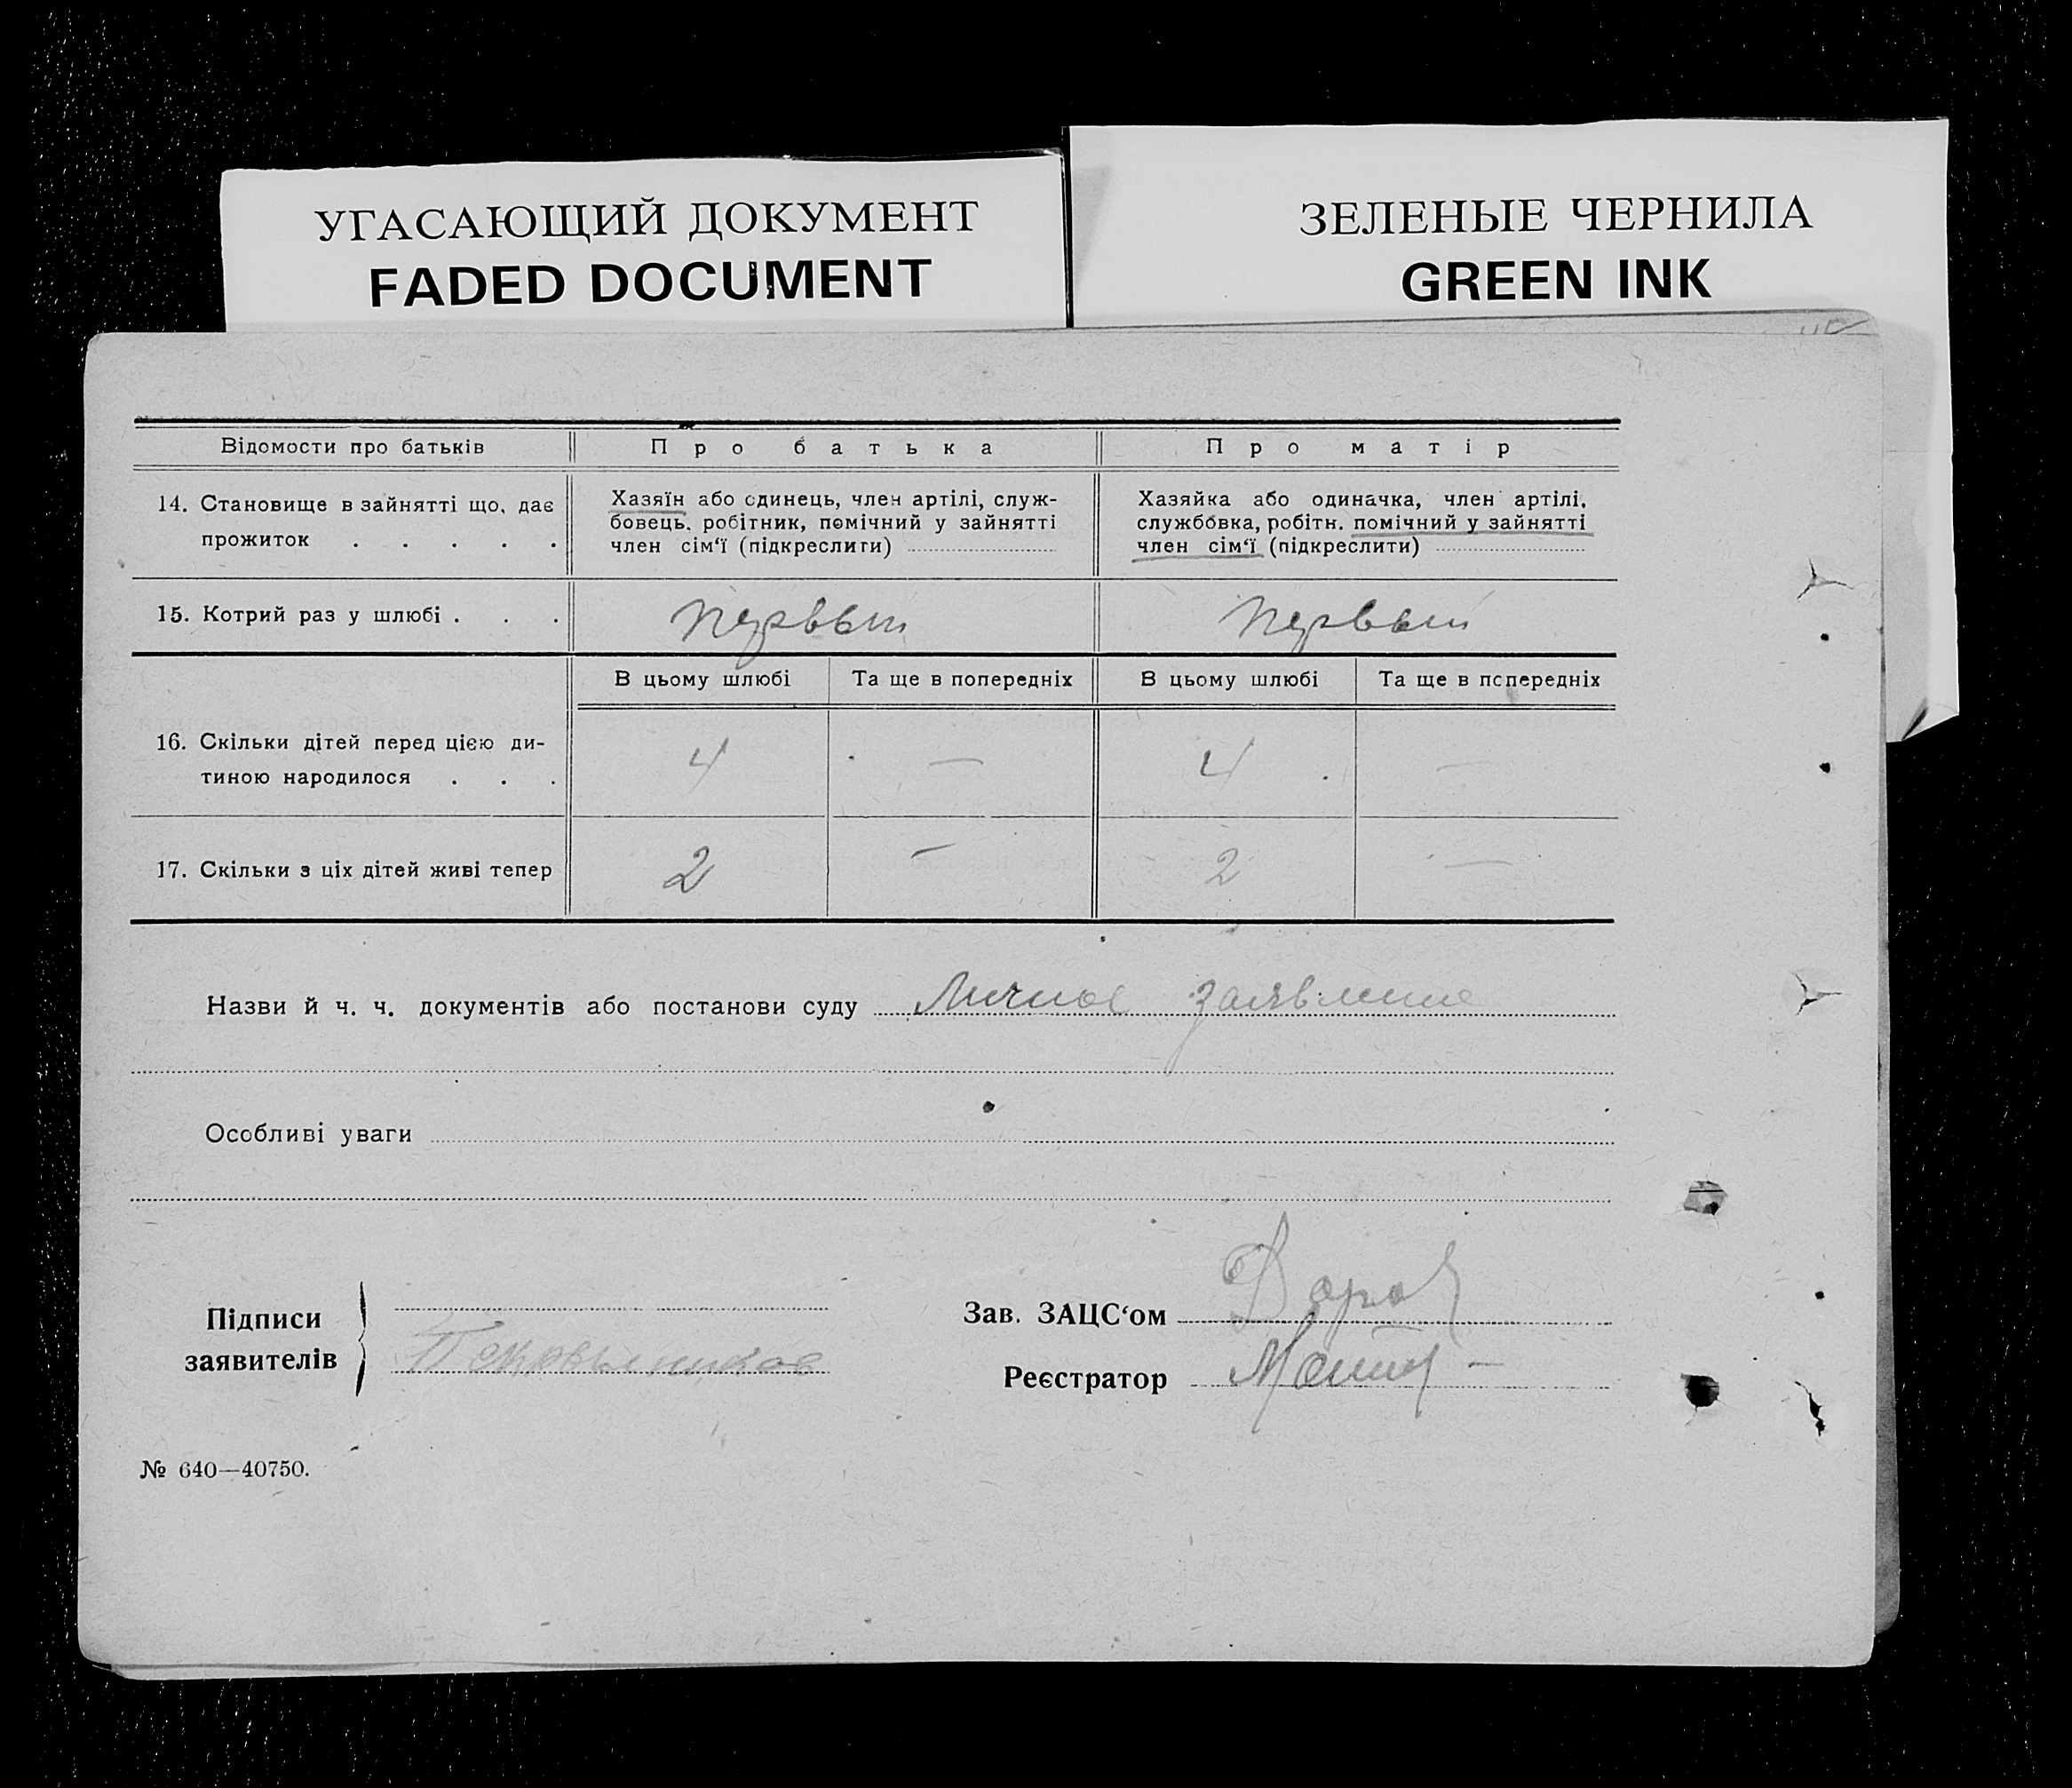 УГАСАЮЩИЙ ДОКУМЕНТ
FADED DOCUMENT
ЗЕЛЕНЫЕ ЧЕРНИЛА
GREEN INK
Відомости про батьків
Про батька
Про матір
14. Становище в зайнятті що, дає
прожиток . . . . .
Хазяїн або одинець, член артілі, служ-
бовець, робітник, помічний у зайнятті
член сім‘ї (підкреслити)
Хазяйка або одиначка, член артілі,
службовка, робітн. помічний у зайнятті
член сім‘ї (підкреслити)
15. Котрий раз у шлюбі . . .
первый
первый
В цьому шлюбі
Та ще в попередніх
В цьому шлюбі
Та ще в попередніх
16. Скільки дітей перед цією ди-
тиною народилося . . .
4
—
4
—
17. Скільки з ціх дітей живі тепер
2
—
2
—
Назви й ч. ч. документів або постанови суду Личное заявление
Особливі уваги
Підписи
заявителів
Зав. ЗАЦС‘ом
Реєстратор
№ 640—40750.